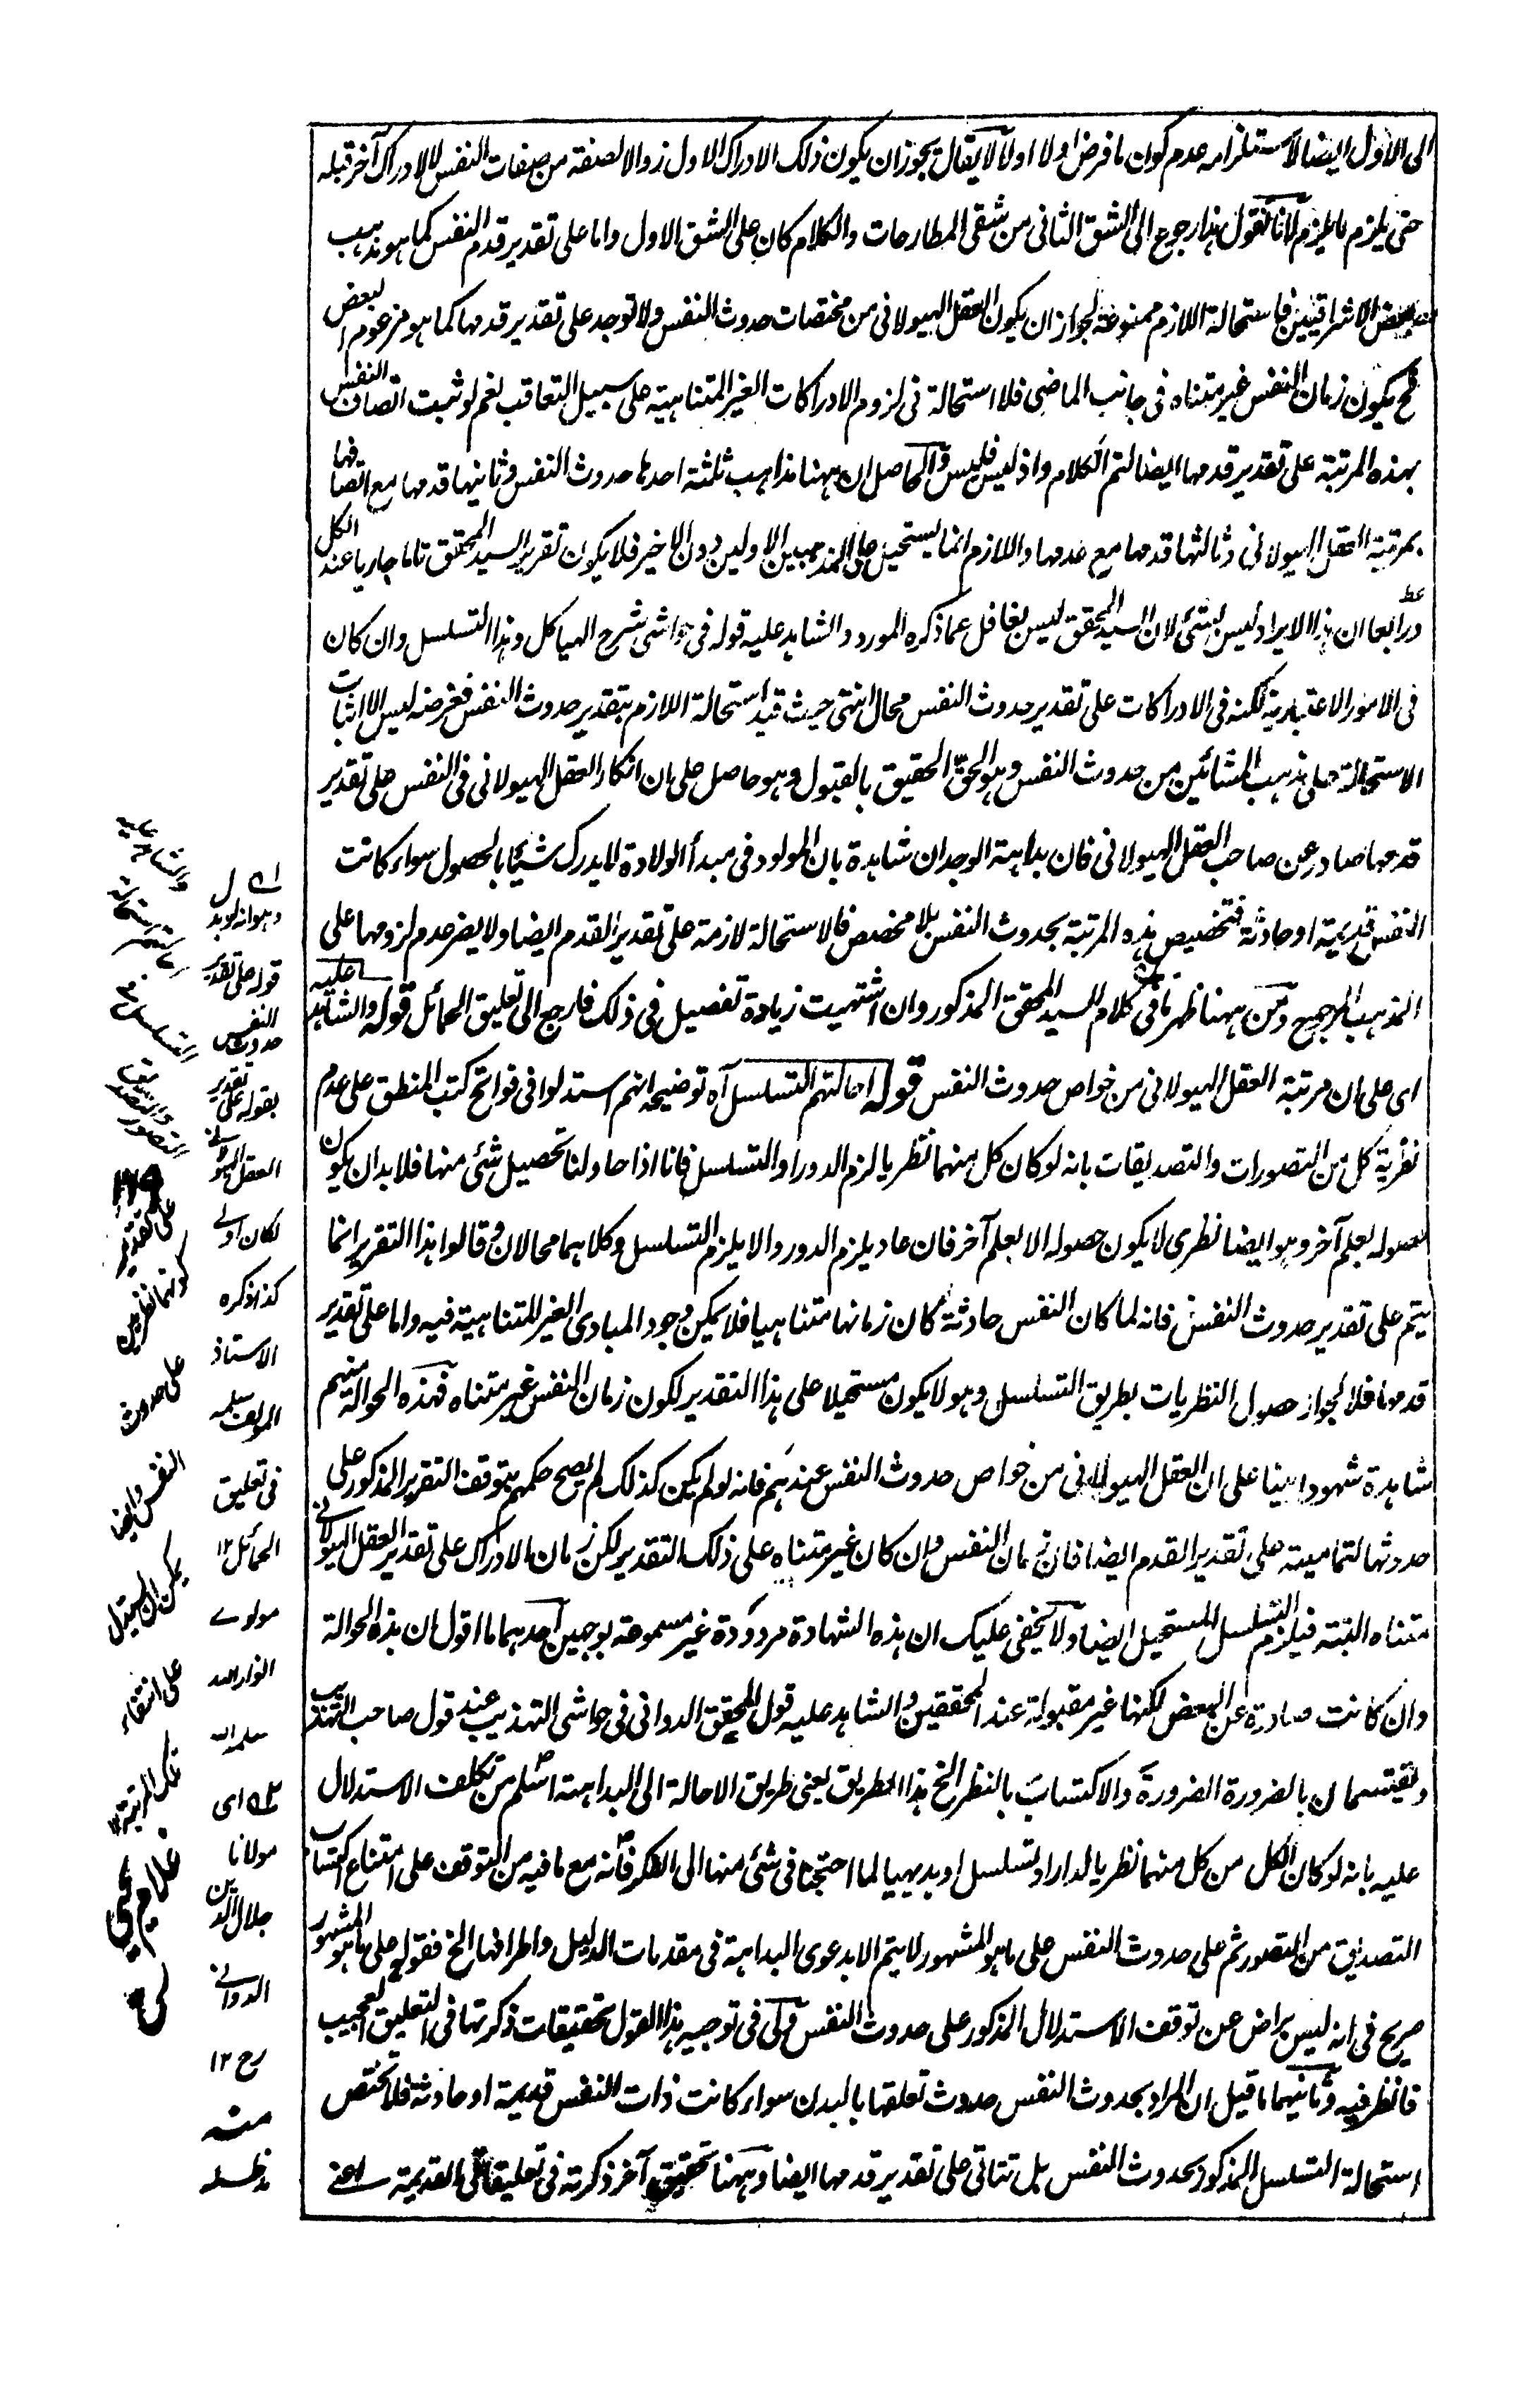 الى الاول ايضا لاستلزامه عدم كون ما فرض اولا اولا لا يقال يجوز ان يكون ذلك الادراك الاول زوالا لصفة من صفات النفس لا لادراك آخر قبله
حتى يلزم ما يلزم لانا نقول هذا رجوع الى الشق الثانى من شقى المطارحات والكلام كان على الشق الاول واما على تقدير قدم النفس كما هو مذهب
بعض الاشراقيين فاستحالة اللازم ممنوعة لجواز ان يكون العقل الهيولانى من مختصات حدوث النفس ولا توجد على تقدير قدمها كما هو مزعوم البعض
فح يكون زمان النفس غير متناه فى جانب الماضى فلا استحالة فى لزوم الادراكات الغير المتناهية على سبيل التعاقب نعم لو ثبت اتصاف النفس
بهذه المرتبة على تقدير قدمها ايضا لتم الكلام واذ ليس فليس والحاصل ان ههنا مذاهب ثلثة احدها حدوث النفس وثانيها قدمها مع اتصافها
بمرتبة العقل الهيولانى وثالثها قدمها مع عدمها واللازم انما يستحيل على المذهبين الاولين دون الاخير فلا يكون تقرير السيد المحقق تاما جاريا عند الكل
ورابعا ان هذا الايراد ليس بشئ لان السيد المحقق ليس بغافل عما ذكره المورد والشاهد عليه قوله فى حواشى شرح الهياكل وهذا التسلسل وان كان
فى الامور الاعتبارية لكنه فى الادراكات على تقدير حدوث النفس محال انتهى حيث قيد استحالة اللازم بتقدير حدوث النفس فغرضه ليس الا اثبات
الاستحالة على مذهب المشائين من حدوث النفس وهو الحق الحقيق بالقبول وهو حاصل على ان انكار العقل الهيولانى فى النفس على تقدير
قدمها صادر عن صاحب العقل الهيولانى فان بداهة الوجدان شاهدة بان المولود فى مبدأ الولادة لا يدرك شيئا بالحصول سواء كانت
النفس قديمة او حادثة فتخصيص هذه المرتبة بحدوث النفس بلا مخصص فالاستحالة لازمة على تقدير القدم ايضا ولا يضر عدم لزومها على
المذهب المرجوح ومن ههنا ظهر ما فى كلام السيد المحقق المذكور وان اشتهيت زيادة تفصيل فى ذلك فارجع الى تعليق الحمائل قوله والشاهد عليه
اى على ان مرتبة العقل الهيولانى من خواص حدوث النفس قوله احالتهم التسلسل آه توضيحه انهم استدلوا فى فواتح كتب المنطق على عدم
نظرية كل من التصورات والتصديقات بانه لو كان كل منهما نظريا لزم الدور او التسلسل فانا اذا حاولنا تحصيل شئ منها فلا بد ان يكون
حصوله بعلم آخر وهو ايضا نظرى لا يكون حصوله الا بعلم آخر فان عاد يلزم الدور والا يلزم التسلسل وكلاهما محالان وقالوا هذا التقرير انما
يتم على تقدير حدوث النفس فانه لما كان النفس حادثة كان زمانها متناهيا فلا يمكن وجود المبادى الغير المتناهية فيه واما على تقدير
قدمها فلا لجواز حصول النظريات بطريق التسلسل وهو لا يكون مستحيلا على هذا التقدير لكون زمان النفس غير متناه فهذه الحوالة منهم
شاهدة شهودا بينا على ان العقل الهيولانى من خواص حدوث النفس عندهم فانه لو لم يكن كذلك لم يصح حكمهم بتوقف التقرير المذكور على
حدوثها لتماميته على تقدير القدم ايضا فان زمان النفس وان كان غير متناه على ذلك التقدير لكن زمان الادراك على تقدير العقل الهيولانى
متناه البتة فيلزم التسلسل المستحيل ايضا ولا يخفى عليك ان هذه الشهادة مردودة غير مسموعة بوجهين احدهما ما اقول ان هذه الحوالة
وان كانت صادرة عن البعض لكنها غير مقبولة عند المحققين والشاهد عليه قول المحقق الدوانى فى حواشى التهذيب عند قول صاحب التهذيب
ويقتسمان بالضرورة الضرورة والاكتساب بالنظر الخ هذا الطريق يعنى طريق الاحالة الى البداهة اسلم من تكلف الاستدلال
عليه بانه لو كان الكل من كل منهما نظريا لدار او تسلسل او بديهيا لما احتجنا فى شئ منها الى الفكر فانه مع ما فيه من التوقف على امتناع اكتساب
التصديق من التصور ثم على حدوث النفس على ما هو المشهور لا يتم الا بدعوى البداهة فى مقدمات الدليل واطرافها الخ فقوله على ما هو المشهور
صريح فى انه ليس براض عن توقف الاستدلال المذكور على حدوث النفس ولى فى توجيه هذا القول تحقيقات ذكرتها فى التعليق العجيب
فانظر فيه وثانيهما ما قيل ان المراد بحدوث النفس حدوث تعلقها بالبدن سواء كانت ذات النفس قديمة او حادثة فلا تختص
استحالة التسلسل المذكور بحدوث النفس بل تتاتى على تقدير قدمها ايضا وههنا تحقيق آخر ذكرته فى تعليقاتى القديمة اعنى
قوله على تقدير
حدوث النفس
بقوله على تقدير
العقل الهيولانى
لكان اولى
كذا ذكره
الاستاذ
المؤلف سلمه
فى تعليق
الحمائل ١٢
مولوى
انوار الله
سلمه الله
اى
مولانا
جلال الدين
الدوانى
رح ١٢
منه
مد ظله
والشاهد عليه
احالتهم استحالة
التسلسل فى
التصور والتصديق
على تقدير
كونهما نظريين
على حدوث
النفس وايضا
يمكن ان يستدل
على انتفاء
تلك المرتبة ١٢
غلام يحيى